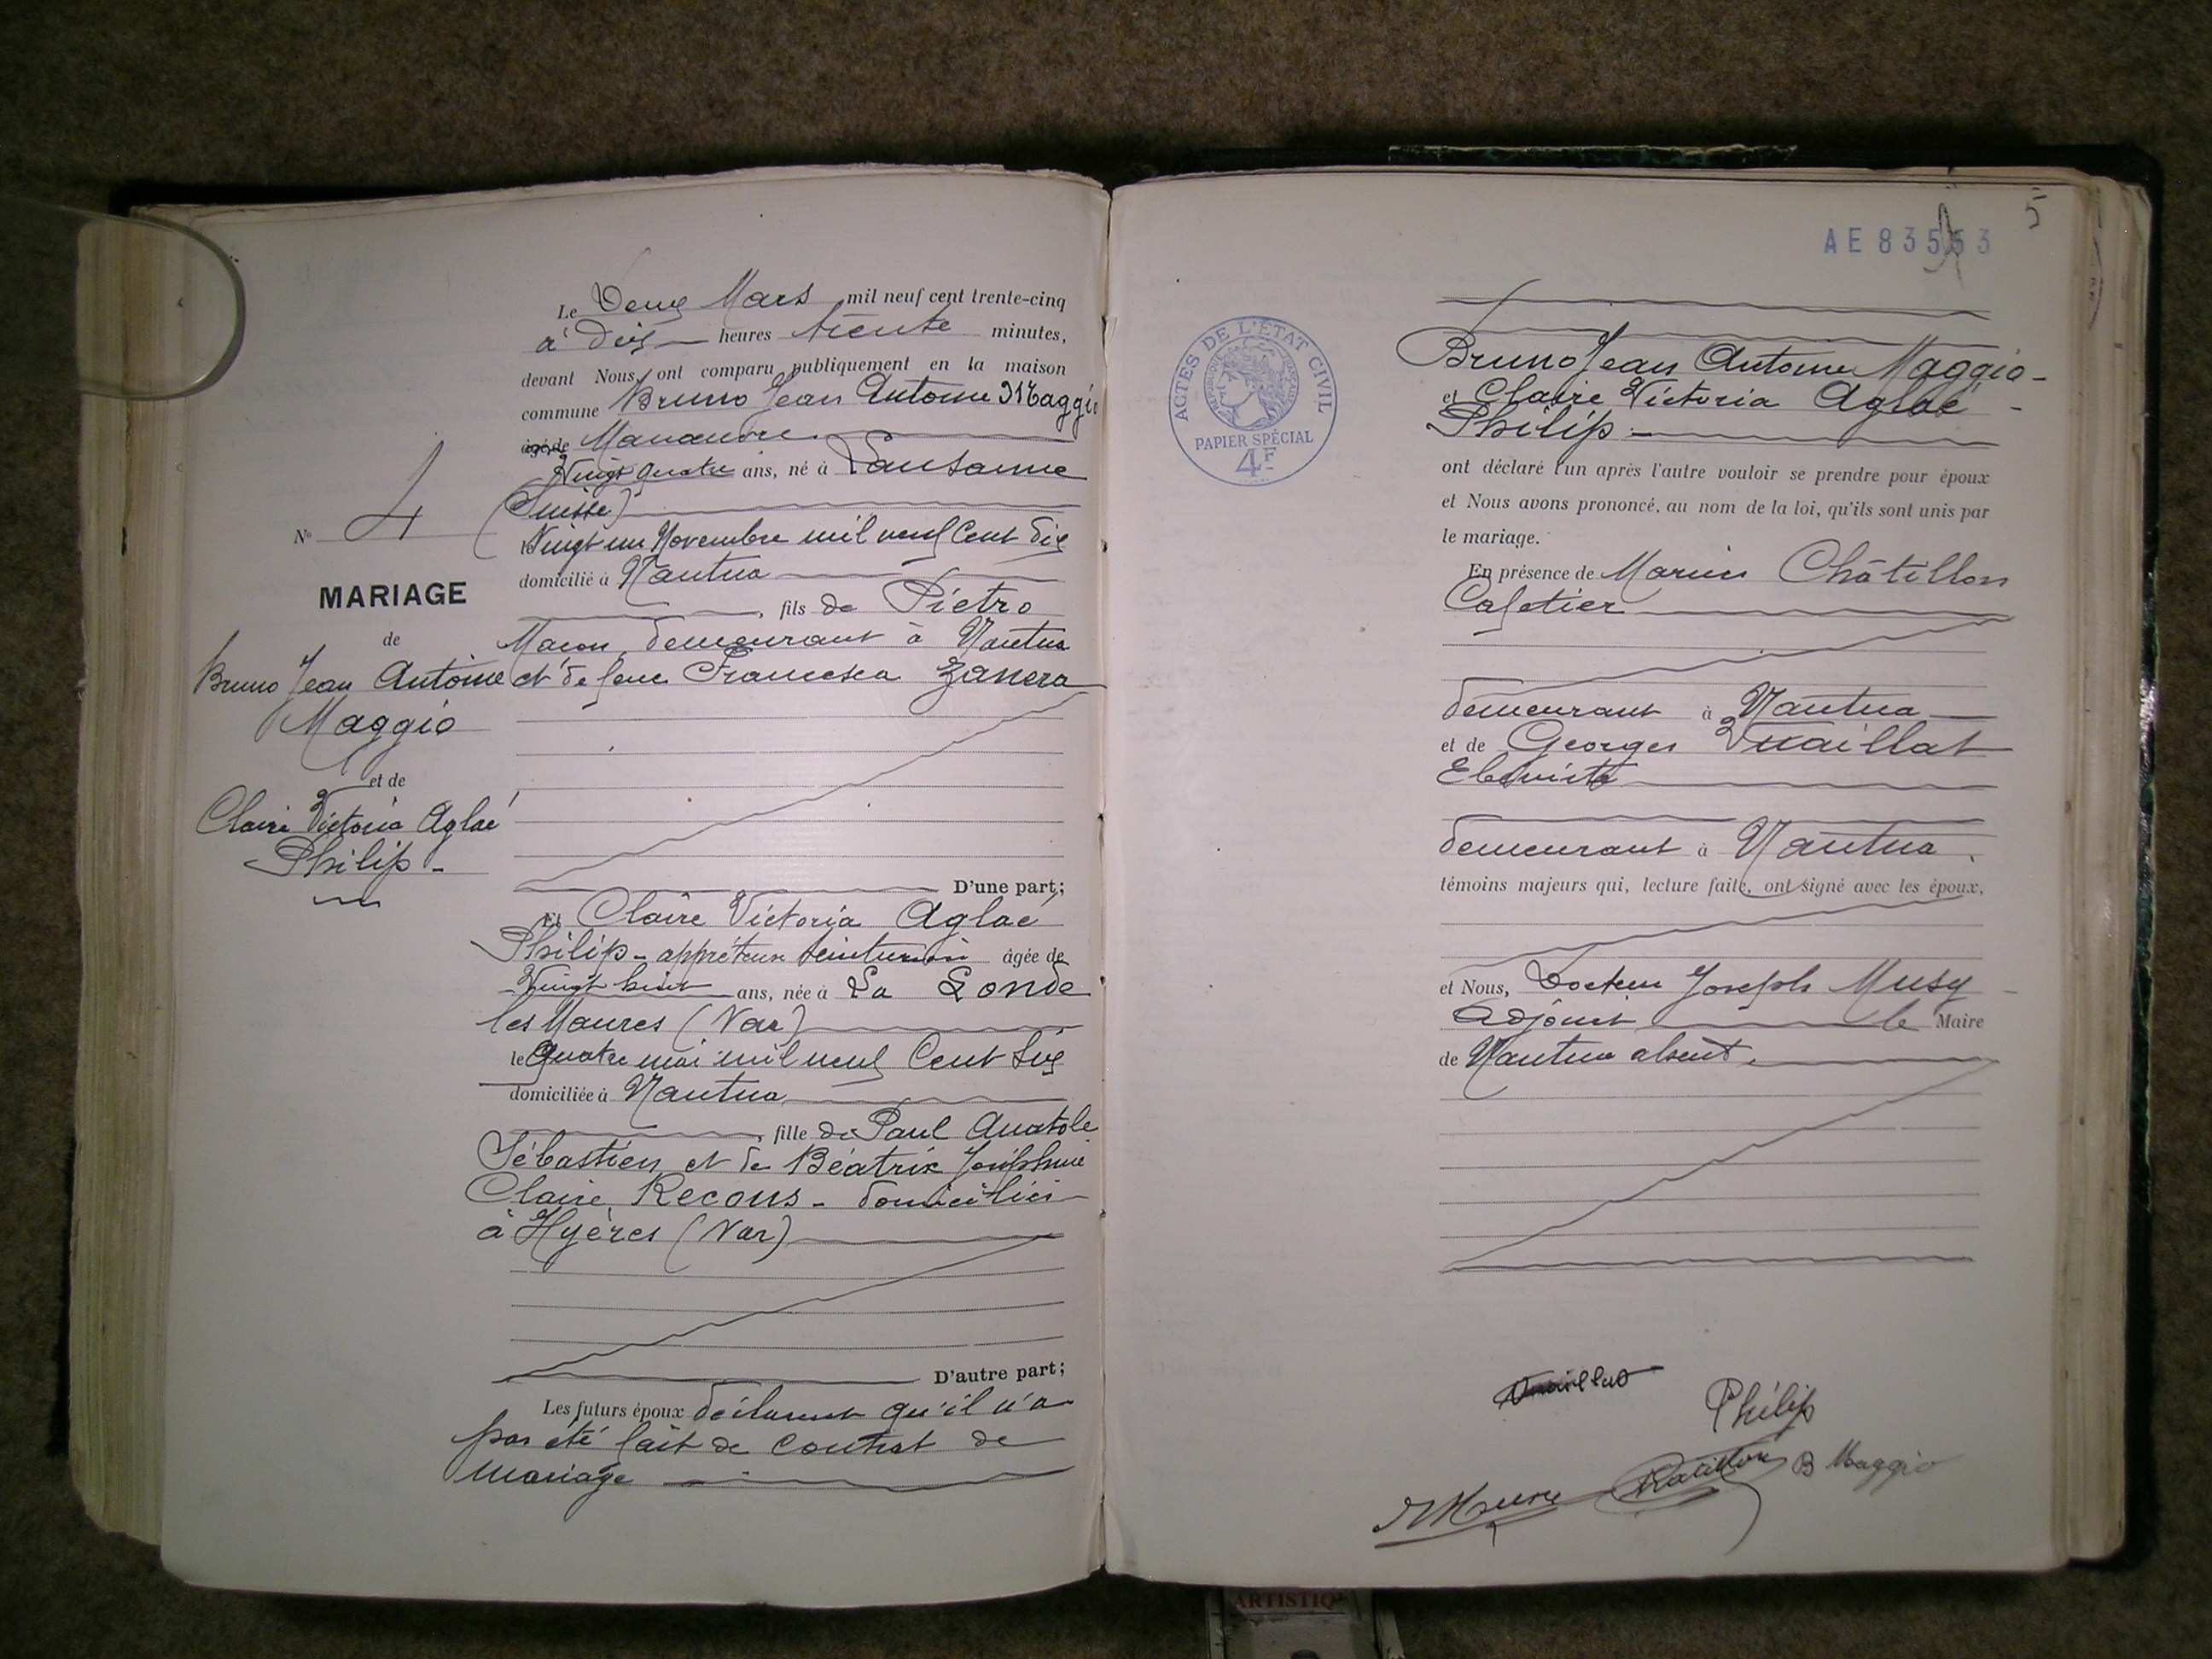 Le Deux Mars mil neuf cent trente-cinq
à Dix heures trente minutes,
devant Nous, ont comparu publiquement en la maison
commune Bruno Jean Antoine Maggio
âgé de Manœuvre
Vingt quatre ans, né à Lausanne
(Suisse)
le Vingt un Novembre mil neuf Cent dix
domicilié à Nantua
, fils de Pietro
Macon, demeurant à Nantua
et de feue Francesca Zanera
D'une part;
N° 4
MARIAGE
de
Bruno Jean Antoine
Maggio
et de
Claire Victoria Aglaé
Philip -
Et Claire Victoria Aglaé
Philip - appréteuse teinturerie âgée de
Vingt huit ans, née à La Londe
les Maures (Var)
le Quatre mai mil neuf Cent Six
domiciliée à Nantua
, fille de Paul Anatole
Sébastien et de Béatrix Joséphine
Claire Recous - domiciliés
à Hyères (Var)
D'autre part;
Les futurs époux déclarent qu'il n'a
pas été fait de contrat de
Mariage
5
AE 83553
ACTES DE L'ÉTAT CIVIL
RÉPUBLIQUE FRANÇAISE
PAPIER SPÉCIAL
4F
Bruno Jean Antoine Maggio -
et Claire Victoria Aglaé -
Philip -
ont déclaré l'un après l'autre vouloir se prendre pour époux
et Nous avons prononcé, au nom de la loi, qu'ils sont unis par
le mariage.
En présence de Marius Châtillon
Cafetier
demeurant à Nantua
et de Georges Vuaillat
Ebéniste
demeurant à Nantua.
témoins majeurs qui, lecture faite, ont signé avec les époux,
et Nous, Docteur Joseph Musy
Adjoint le Maire
de Nantua absent.
Vuaillat
Philip
Chatillon B Maggio
ARTISTIQ